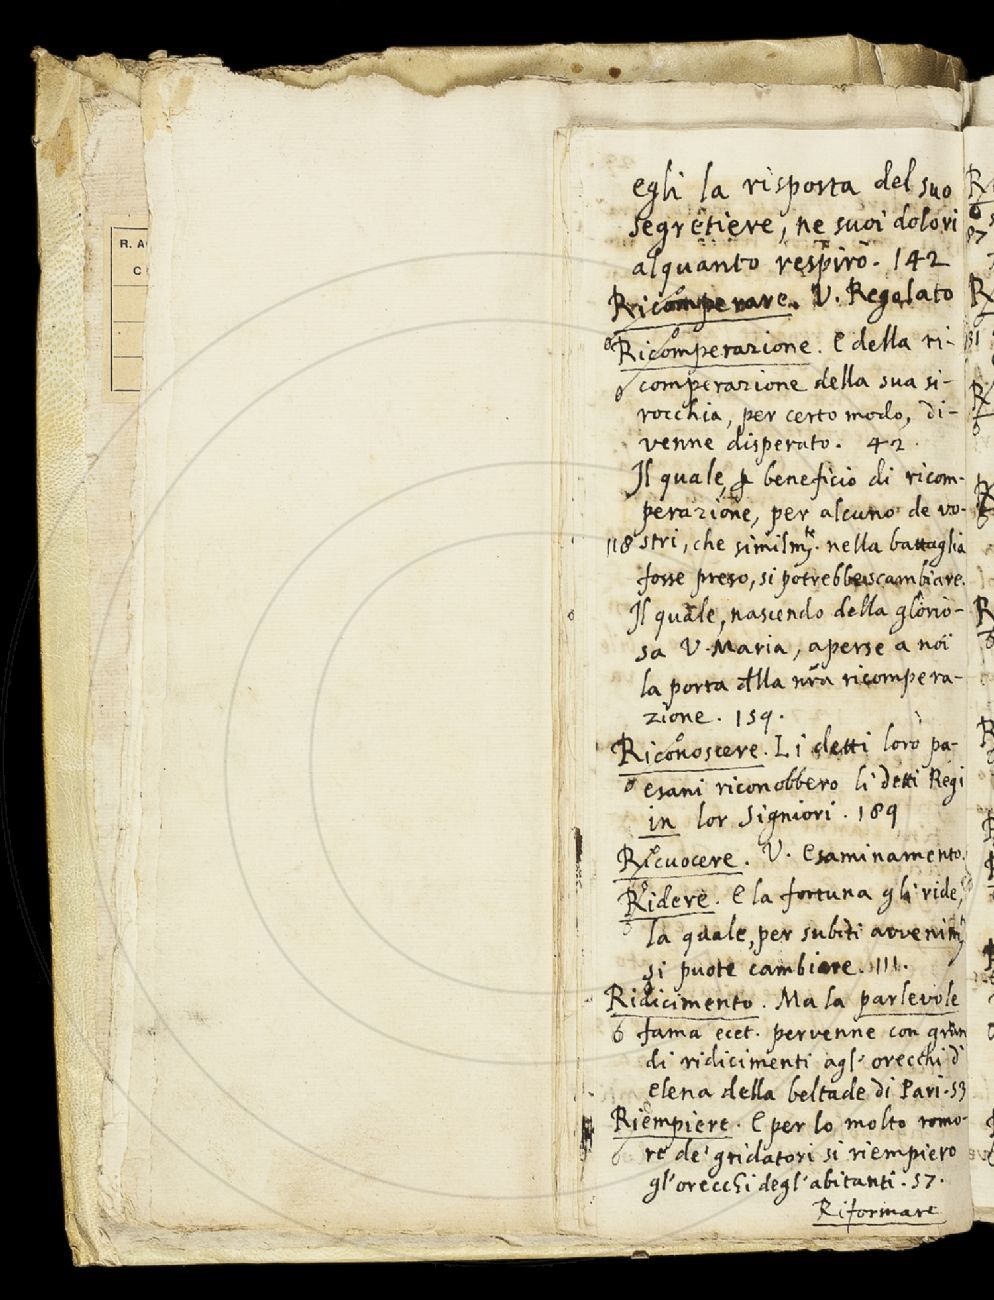 R. A
C
egli la risposta del suo
segretiere, ne suoi dolori
alquanto respirò. 142
Ricomperare. V. Regalato
Ricomperazione. E della ri-
comperazione della sua si-
rocchia, per certo modo, di-
venne disperato. 42.
Il quale, ꝑ beneficio di ricom-
perazione, per alcuno de vo-
118 stri, che similmte. nella battaglia
fosse preso, si potrebbe scambiare.
Il quale, nascendo della glorio-
sa V. Maria, aperse a noi
la porta dlla nr̃a ricompera-
zione. 159.
Riconoscere. Li detti loro pa-
esani riconobbero li detti Regi
in lor Signiori. 189
Ricuocere. V. Esaminamento.
Ridere. E la fortuna gli ride,
la quale, per subiti avvenimti
si puote cambiare. 111.
Ridicimento. Ma la parlevole
6 fama ecet. pervenne con gran
di ridicimenti agl' orecchi d'
elena della beltade di Pari. 53
Riempiere. E per lo molto romo-
6 re de' gridatori si riempiero
gl' orecchi degl' abitanti. 57.
Riformare